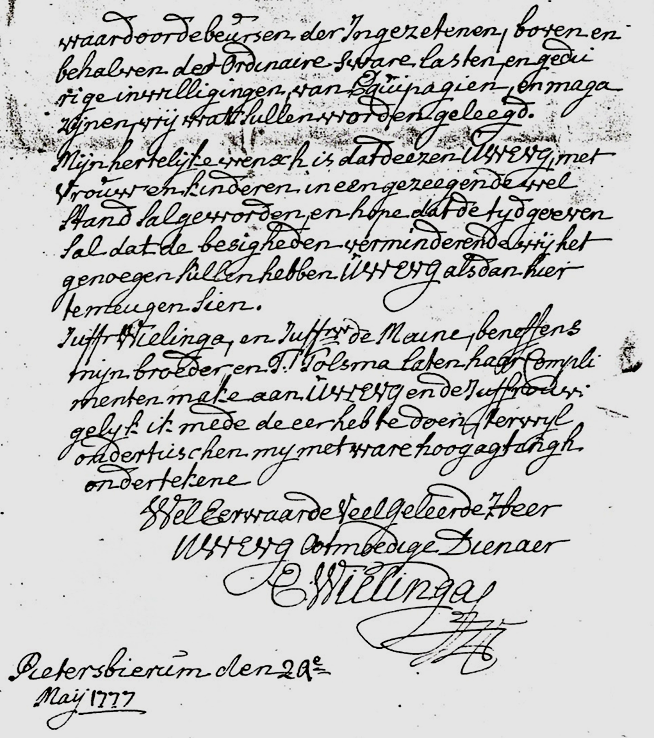 waardoor de beursen der Ingezetenen, boven en
behalven de Ordinaire sware lasten, en gedui
rige inwilligingen, van Equipagien, en maga
zijnen, vrij wat sullen worden geleegd.
Mijn hertelijke wensch is dat deezen UWEWG, met
Vrouw en kinderen in een gezeegende wel
stand sal geworden, en hope dat de tyd geeven
sal dat de besigheden verminderende wij het
genoegen sullen hebben UWEWG als dan hier
te meugen sien.
Juffr Wielinga, en Juffrw de Maine, beneffens
mijn broeder, en T. Tolsma laten haar Compli
menten make aan UWEWG en de Juffrouw:
gelijk ik mede de eer heb te doen, terwyl
ondertusschen my met ware hoogagtingh
ondertekene
Wel Eerwaarde Veel Geleerde Heer
UWEWG Ootmoedige Dienaer
E Wielinga
Pietersbierum den 2e
Maij 1777